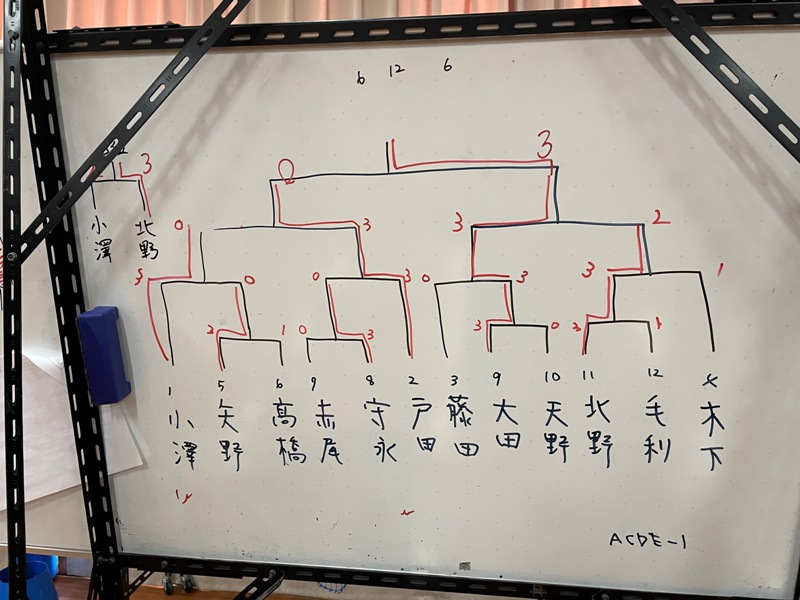 6 12 6
3
3
0
小澤 北野
0 3 3 2
3 0 0 3 0 3 3 1
3 1 0 3 3 0 3 1
1 5 6 9 8 2 3 9 10 11 12 4
小澤 矢野 高橋 赤尾 守永 戸田 藤田 大田 天野 北野 毛利 木下
ACDE-1